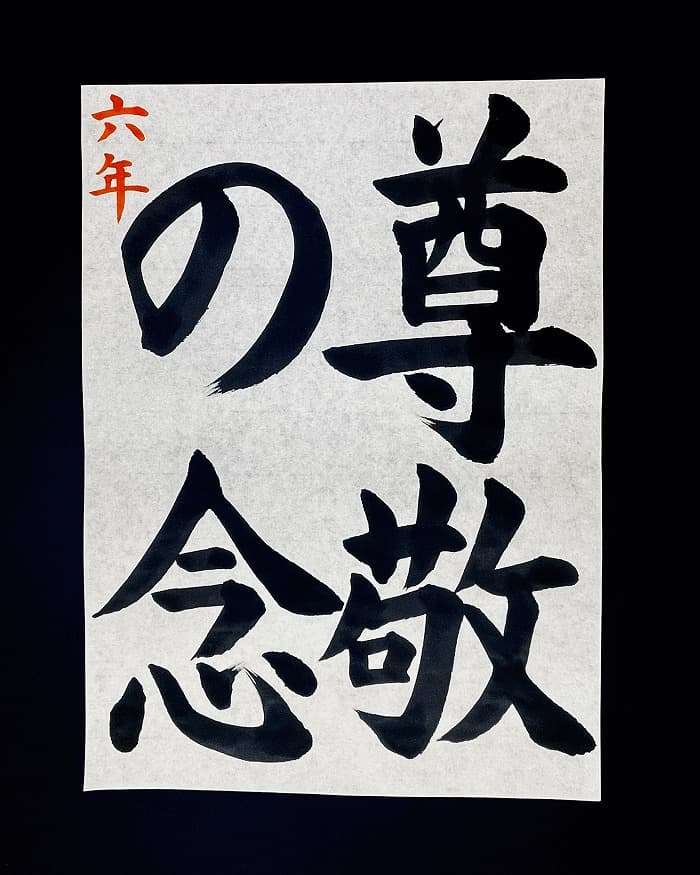 尊敬
の念
六年